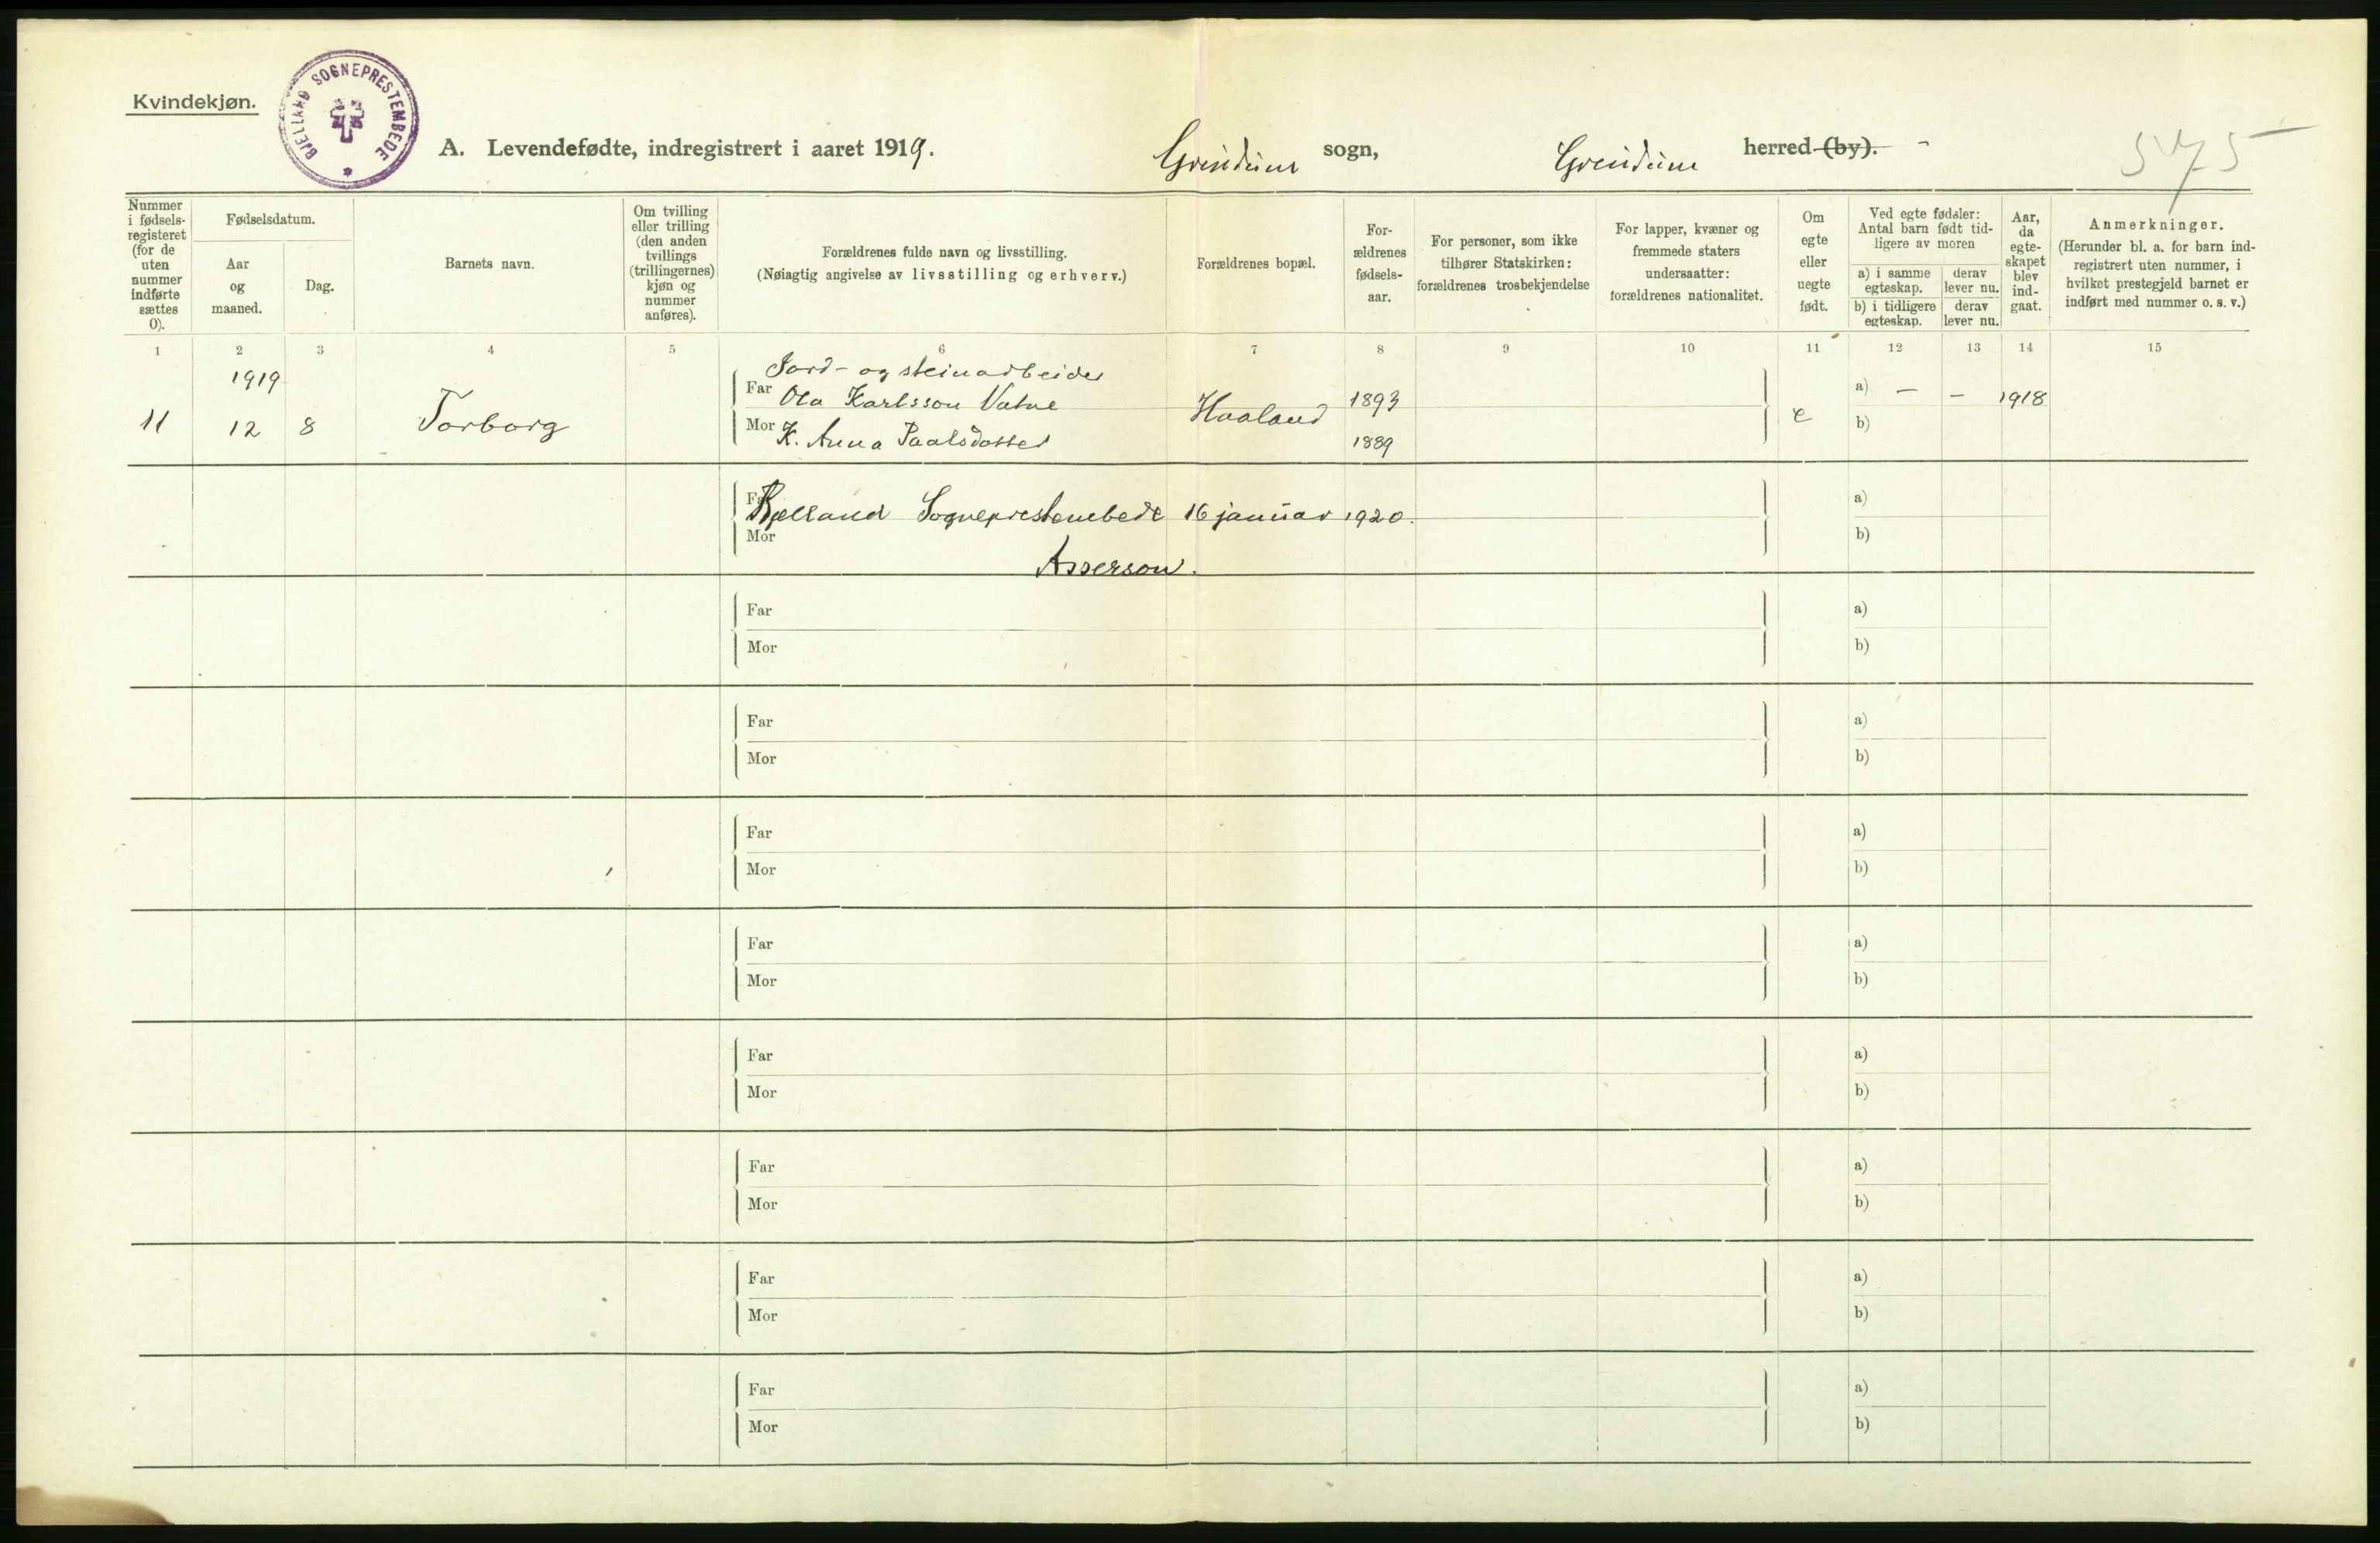 Kvindekjøn.
BJELLAND SOGNEPRESTEMBEDE
A. Levendefødte, indregistrert i aaret 1919. Grindum sogn, Grindum herred (by).
Nummer i fødsels-registeret (for de uten nummer indførte sættes 0).
Fødselsdatum.
Aar og maaned.
Dag.
Barnets navn.
Om tvilling eller trilling (den anden tvillings (trillingernes) kjøn og nummer anføres).
Forældrenes fulde navn og livsstilling.
(Nøiagtig angivelse av livsstilling og erhverv.)
Forældrenes bopæl.
For-ældrenes fødsels-aar.
For personer, som ikke tilhører Statskirken: forældrenes trosbekjendelse
For lapper, kvæner og fremmede staters undersaatter: forældrenes nationalitet.
Om egte eller uegte født.
Ved egte fødsler: Antal barn født tid-ligere av moren
a) i samme egteskap.
derav lever nu.
b) i tidligere egteskap.
derav lever nu.
Aar, da egte-skapet blev ind-gaat.
Anmerkninger.
(Herunder bl. a. for barn ind-registrert uten nummer, i hvilket prestegjeld barnet er indført med nummer o. s. v.)
1 2 3 4 5 6 7 8 9 10 11 12 13 14 15
1919 Jord- og steinarbeider
Far Ola Karlsson Vatne 1893 a) - - 1918
11 12 8 Torborg Haaland e
Mor K. Anna Paalsdotter 1889 b)
Far a)
Bjelland Sogneprestembede 16 januar 1920.
Mor b)
Asserson.
Far a)
Mor b)
Far a)
Mor b)
Far a)
Mor b)
Far a)
Mor b)
Far a)
Mor b)
Far a)
Mor b)
Far a)
Mor b)
Far a)
Mor b)